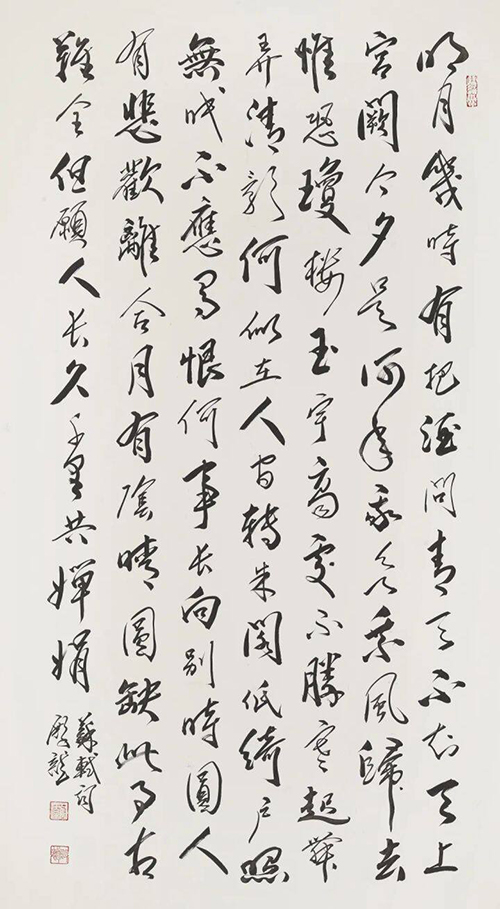 明月幾時有把酒問青天不知天上
宮闕今夕是何年我欲乘風歸去
惟恐瓊樓玉宇高處不勝寒起舞
弄清影何似在人間轉朱閣低綺戶照
無眠不應有恨何事長向別時圓人
有悲歡離合月有陰晴圓缺此事古
難全但願人長久千里共嬋娟
蘇軾詞